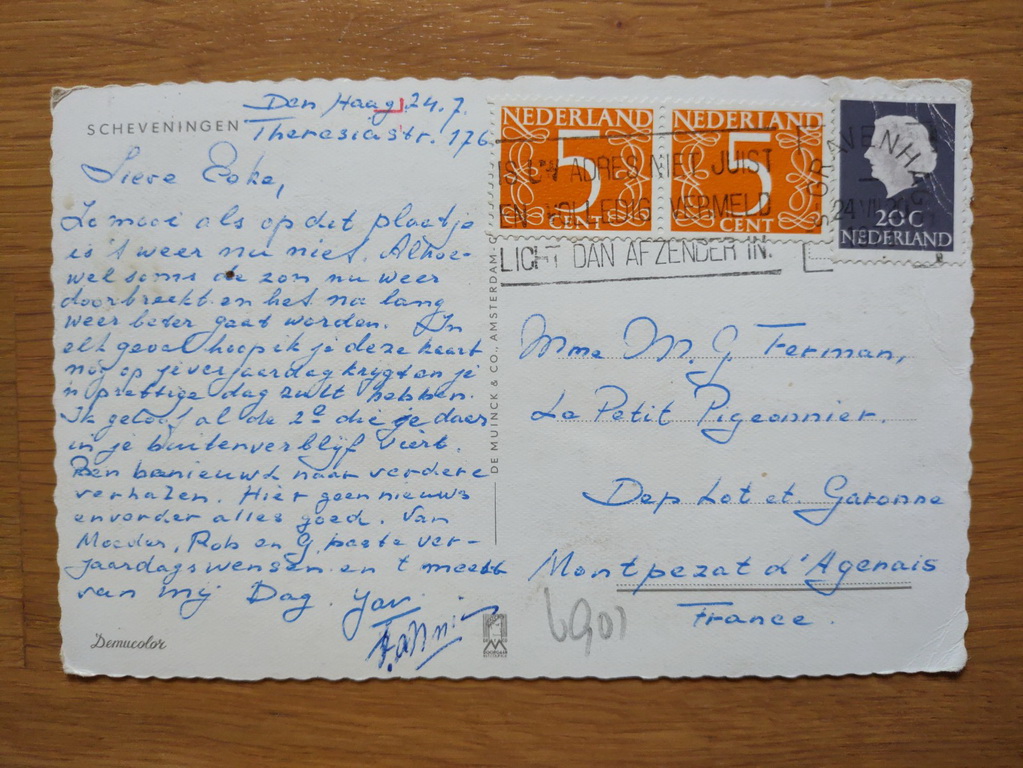 SCHEVENINGEN
Den Haag, 24.7.
Theresiastr. 176
Lieve Coke,
Zo mooi als op dit plaatje
is 't weer nu niet. Alhoe-
wel soms de zon nu weer
doorbreekt en het na lang
weer beter gaat worden. In
elk geval hoop ik je deze kaart
nog op je verjaardag krijgt en je
'n prettige dag zult hebben.
Ik geloof al de 2e die je daar
in je buitenverblijf viert.
Ben benieuwd naar verdere
verhalen. Hier geen nieuws
en verder alles goed. Van
Moeder, Rob en G. beste ver-
jaardagswensen en 't meest
van mij Dag.
Demucolor
DE MUINCK & CO., AMSTERDAM-C
NEDERLAND
5
CENT
NEDERLAND
5
CENT
20C
NEDERLAND
IS UW ADRES NIET JUIST
EN VOLLEDIG VERMELD
LICHT DAN AFZENDER IN.
'S-GRAVENHAGE
24 VII
Mme M. G. Ferman,
Le Petit Pigeonnier.
Dep Lot et Garonne
Montpezat d'Agenais
France.
6901